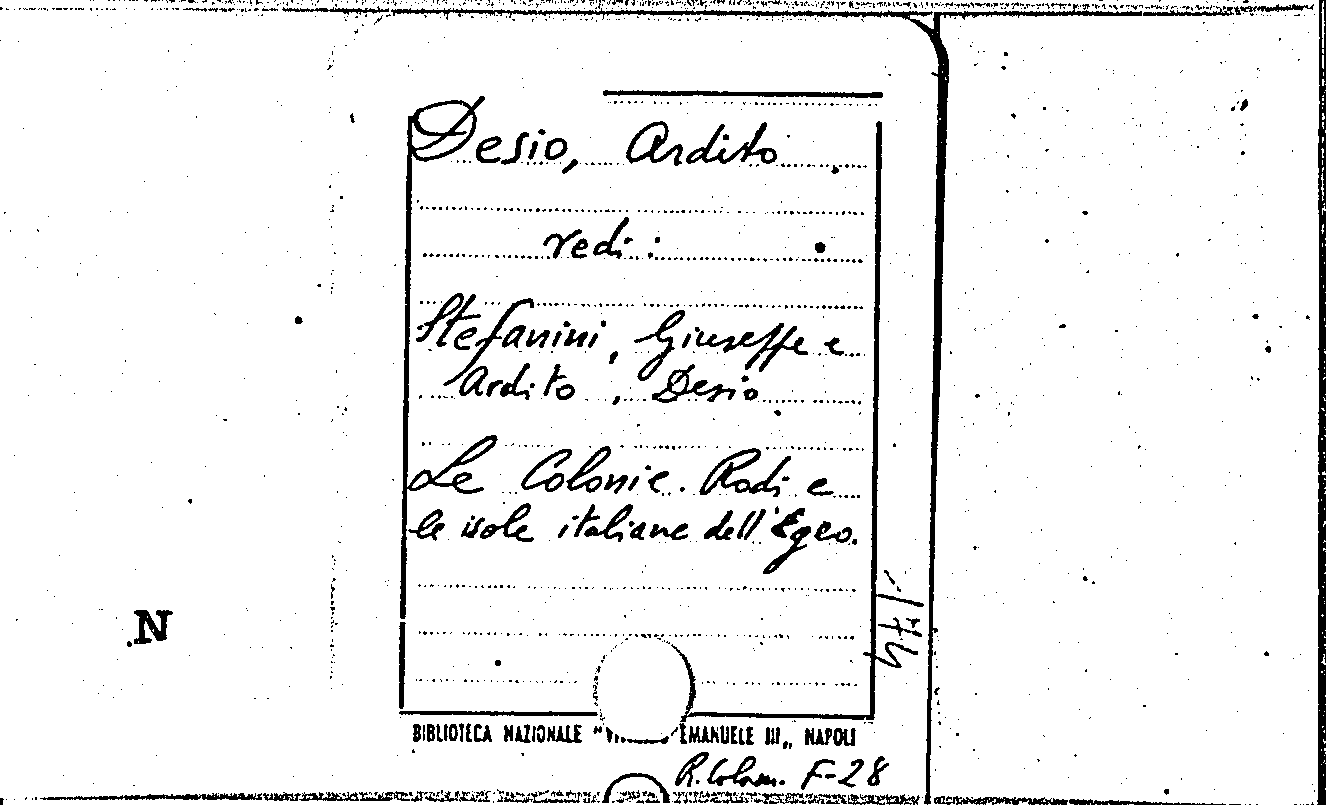 Desio, Ardito
vedi:
Stefanini, Giuseppe e
Ardito, Desio
Le Colonie. Rodi e
le isole italiane dell'Egeo.
N
BIBLIOTECA NAZIONALE " EMANUELE III„ NAPOLI
F-28